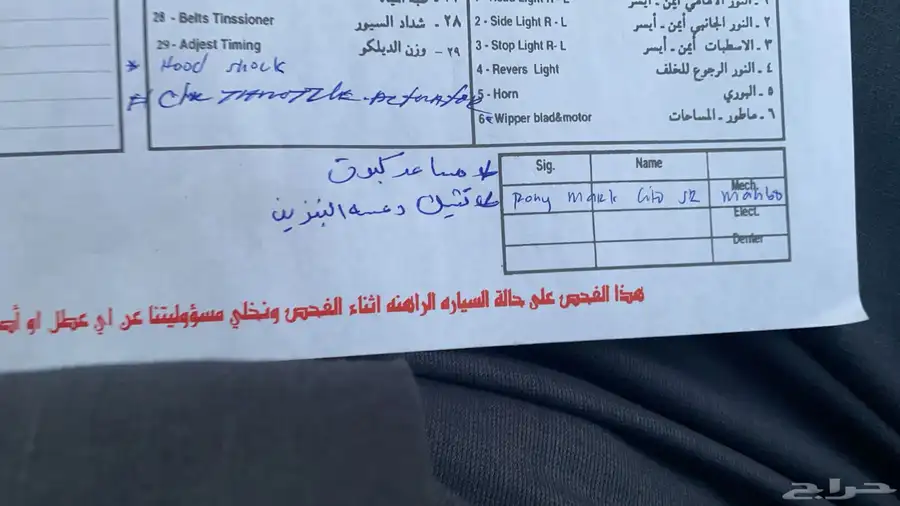 28 - Belts Tinssioner ٢٨ - شداد السيور
29 - Adjest Timing ٢٩ - وزن الديلكو
* Hood shock
# Chk THROTTLE ACTUATOR
٢ - النور الجانبي أيمن - أيسر 2 - Side Light R - L
٣ - الاسطبات أيمن - أيسر 3 - Stop Light R - L
٤ - النور الرجوع للخلف 4 - Revers Light
٥ - البوري 5 - Horn
٦ - ماطور - المساحات 6 - Wipper blad&motor
مساعد كبوت
دعسه البنزين
Sig. Name
Mech.
Elect.
Denter
هذا الفحص على حالة السياره الراهنه اثناء الفحص ونخلي مسؤوليتنا عن اي عطل او
حراج